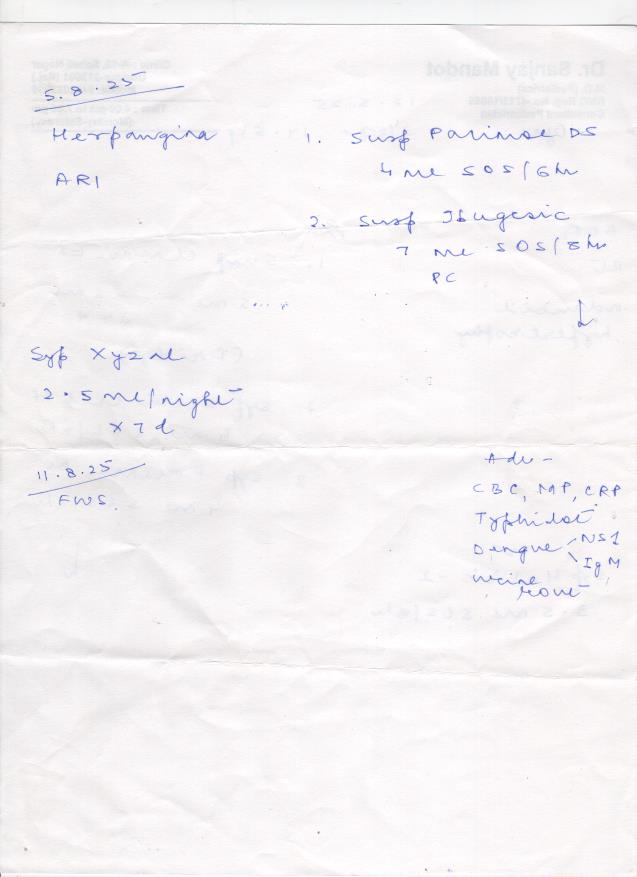 5.8.25
Herpangina
ARI
1. Susp Parimol DS
4 ml SOS/6 hr
2. Susp Ibugesic
7 ml SOS/8 hr
PC
Syp Xyzal
2.5 ml/night
x 7 d
11.8.25
FWS.
Adv -
CBC, MP, CRP
Typhidot
Dengue NS1
IgM
urine rout